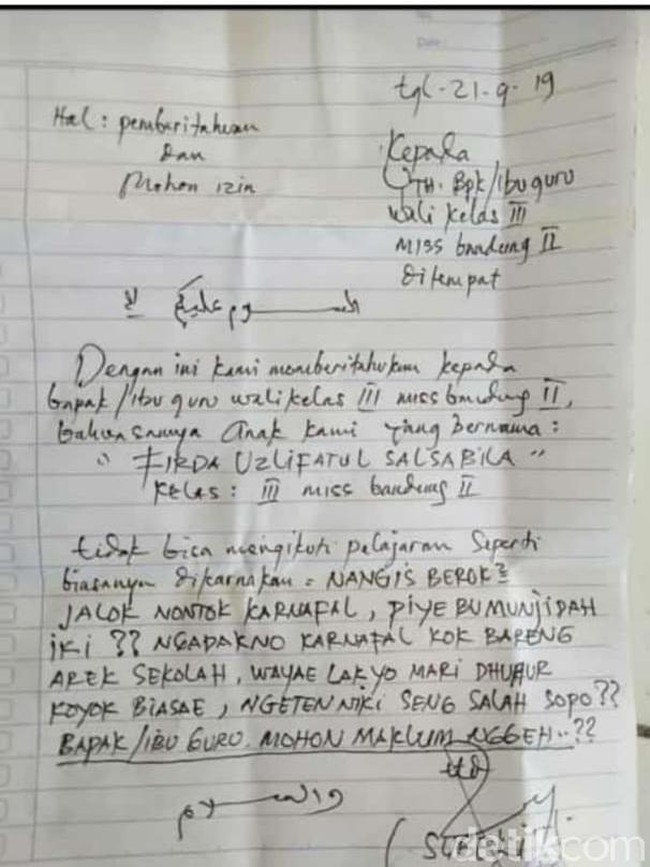 Date
tgl-21-9-19
Hal : pemberitahuan
dan
Mohon izin
Kepada
YTH. Bpk/ibu guru
wali kelas III
MISS bandung II
ditempat
السلام عليكم
Dengan ini kami memberitahukan kepada
bapak/ibu guru wali kelas III miss bandung II,
bahwasannya anak kami yang bernama :
" FIRDA UZLIFATUL SALSABILA "
Kelas : III miss bandung II
tidak bisa mengikuti pelajaran seperti
biasanya dikarnakan = NANGIS BEROK²
JALOK NONTOK KARNAFAL, PIYE BU MUNJIDAH
iKi ?? NGADAKNO KARNAFAL KOK BARENG
AREK SEKOLAH, WAYAE LAK YO MARI DHUHUR
KOYOK BIASAE, NGETEN NIKI SENG SALAH SOPO??
BAPAK/IBU GURU. MOHON MAKLUM NGGEH..??
ttd
والسلام
detikcom